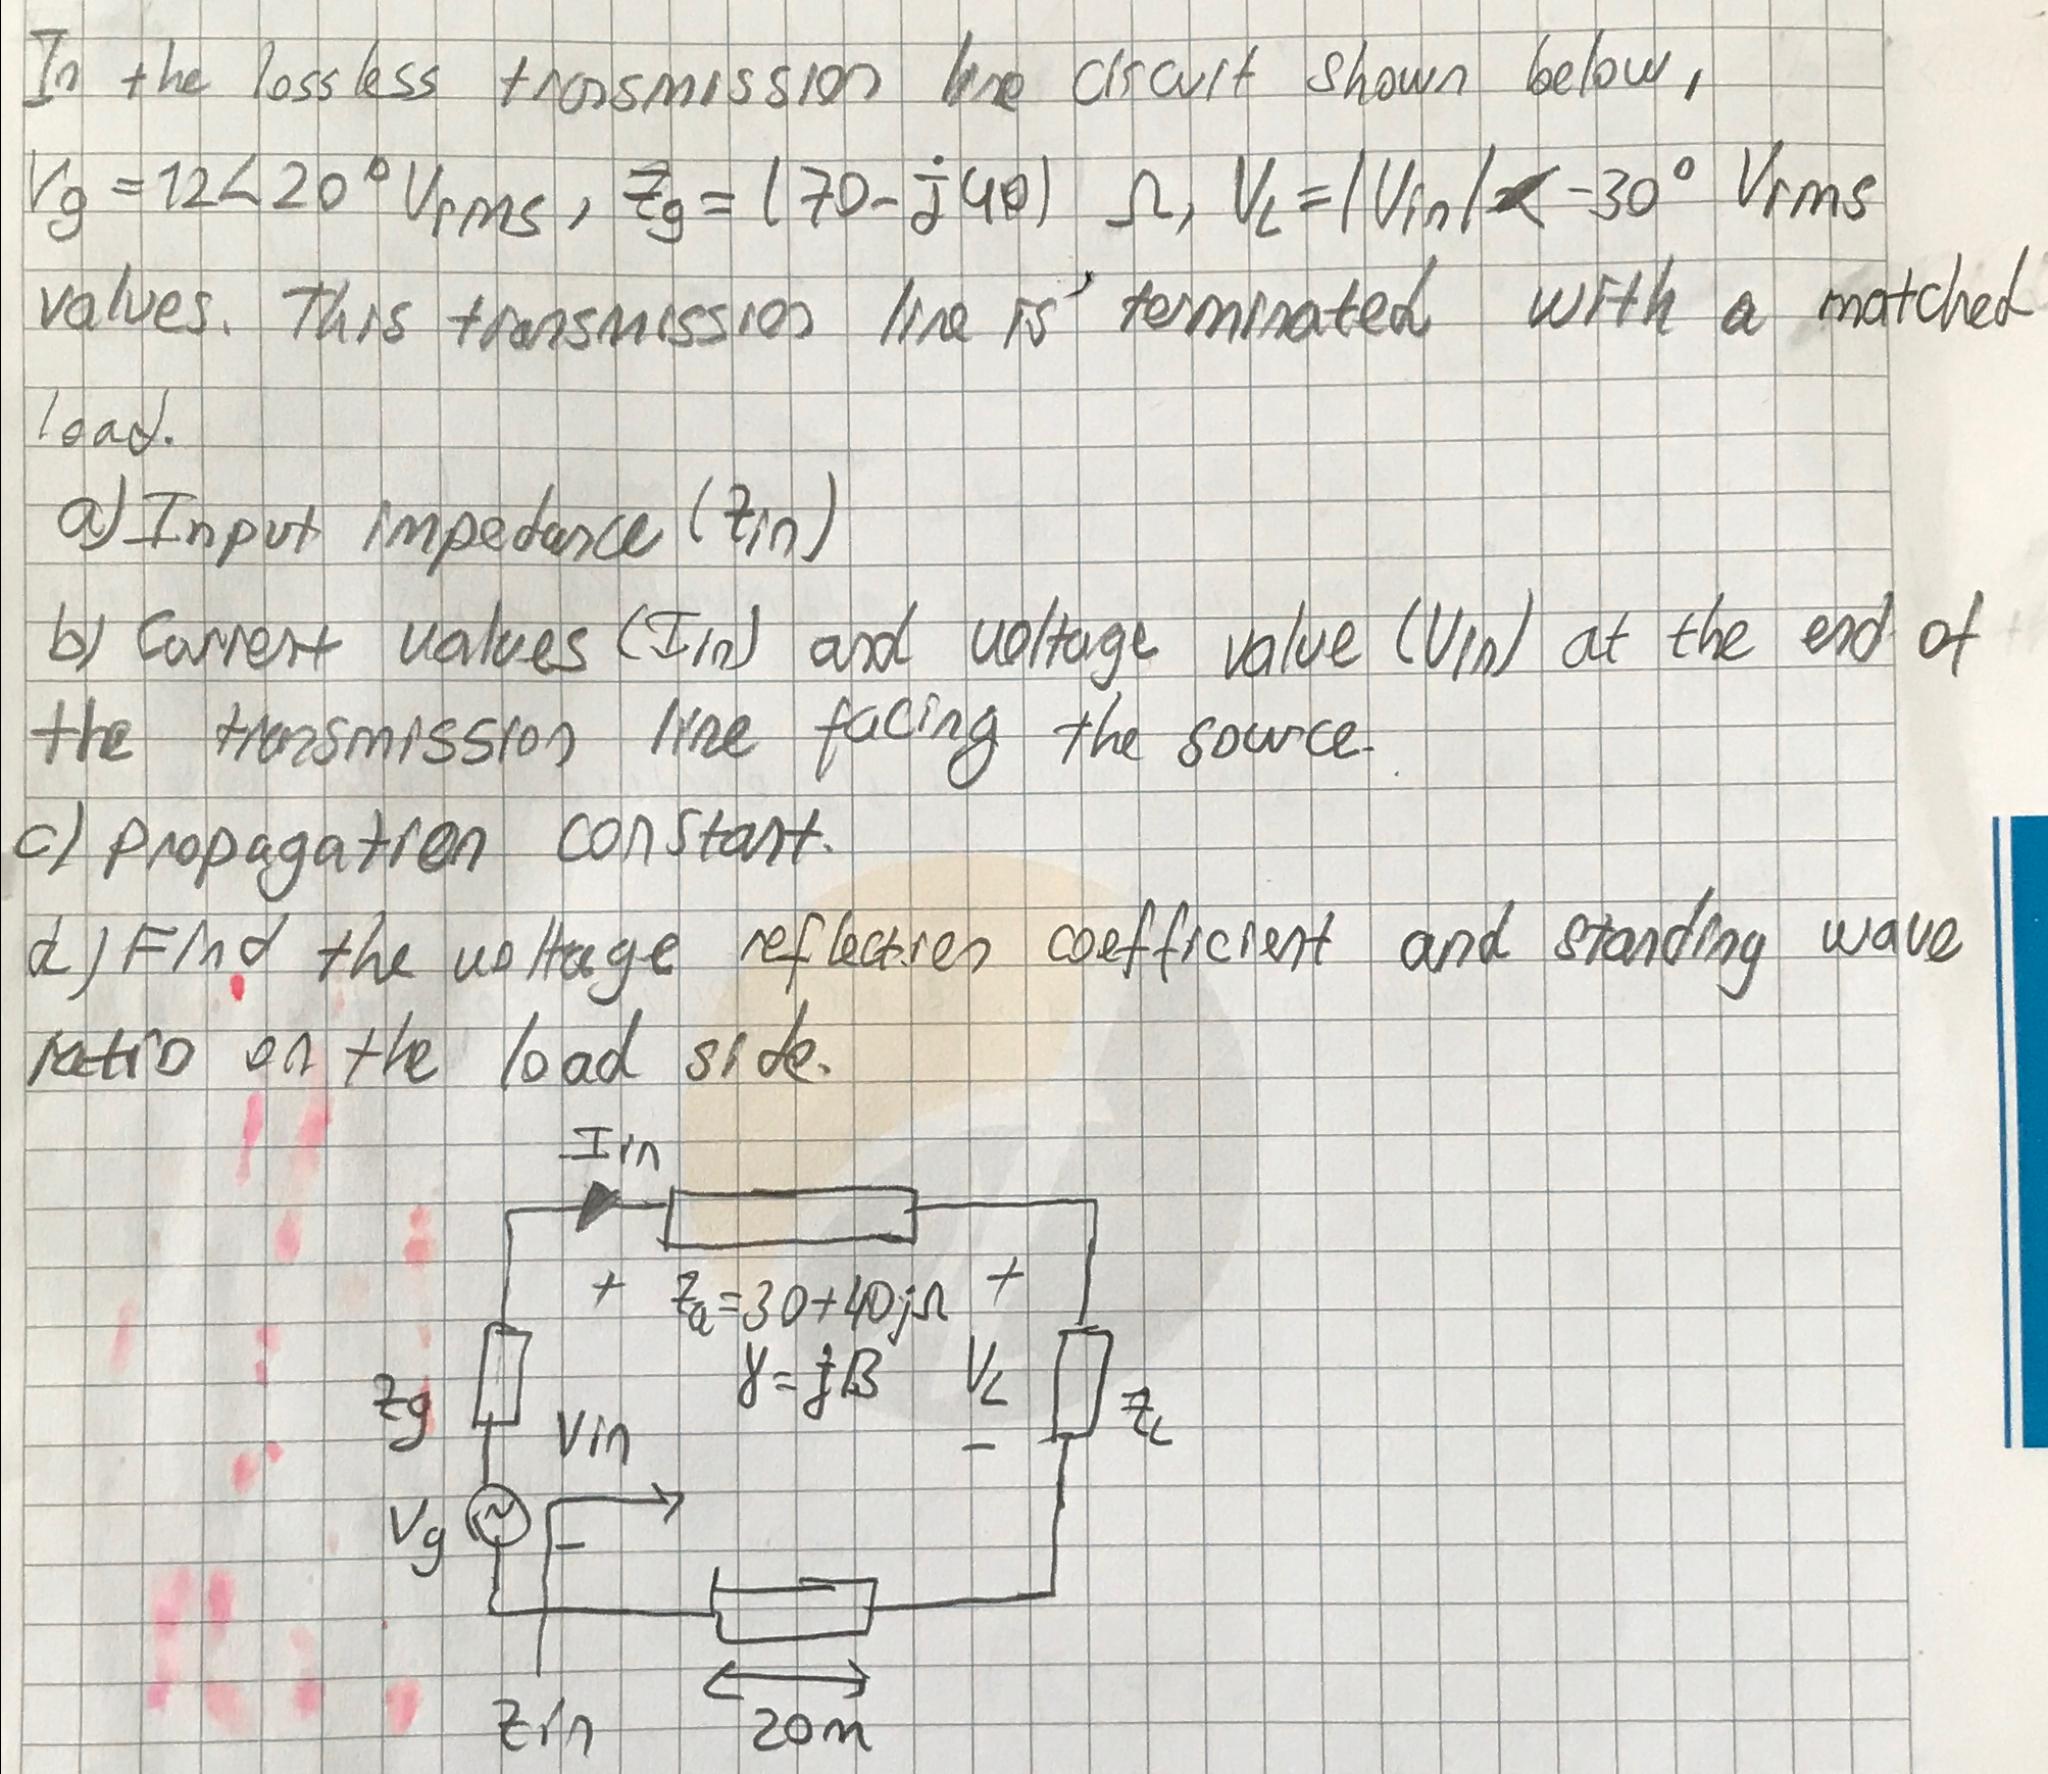 In the lossless transmission line circuit shown below,
Vg = 12∠20° Vrms, Zg = (70-j40) Ω, VL = |Vin|∠-30° Vrms
values. This transmission line is terminated with a matched
load.
a) Input impedance (Zin)
b) Current values (Iin) and voltage value (Vin) at the end of
the transmission line facing the source.
c) Propagation constant.
d) Find the voltage reflection coefficient and standing wave
ratio on the load side.
Iin
+ Za = 30+40jΩ +
γ = jβ VL
Zg ZL
Vin -
Vg
-
Zin 20m